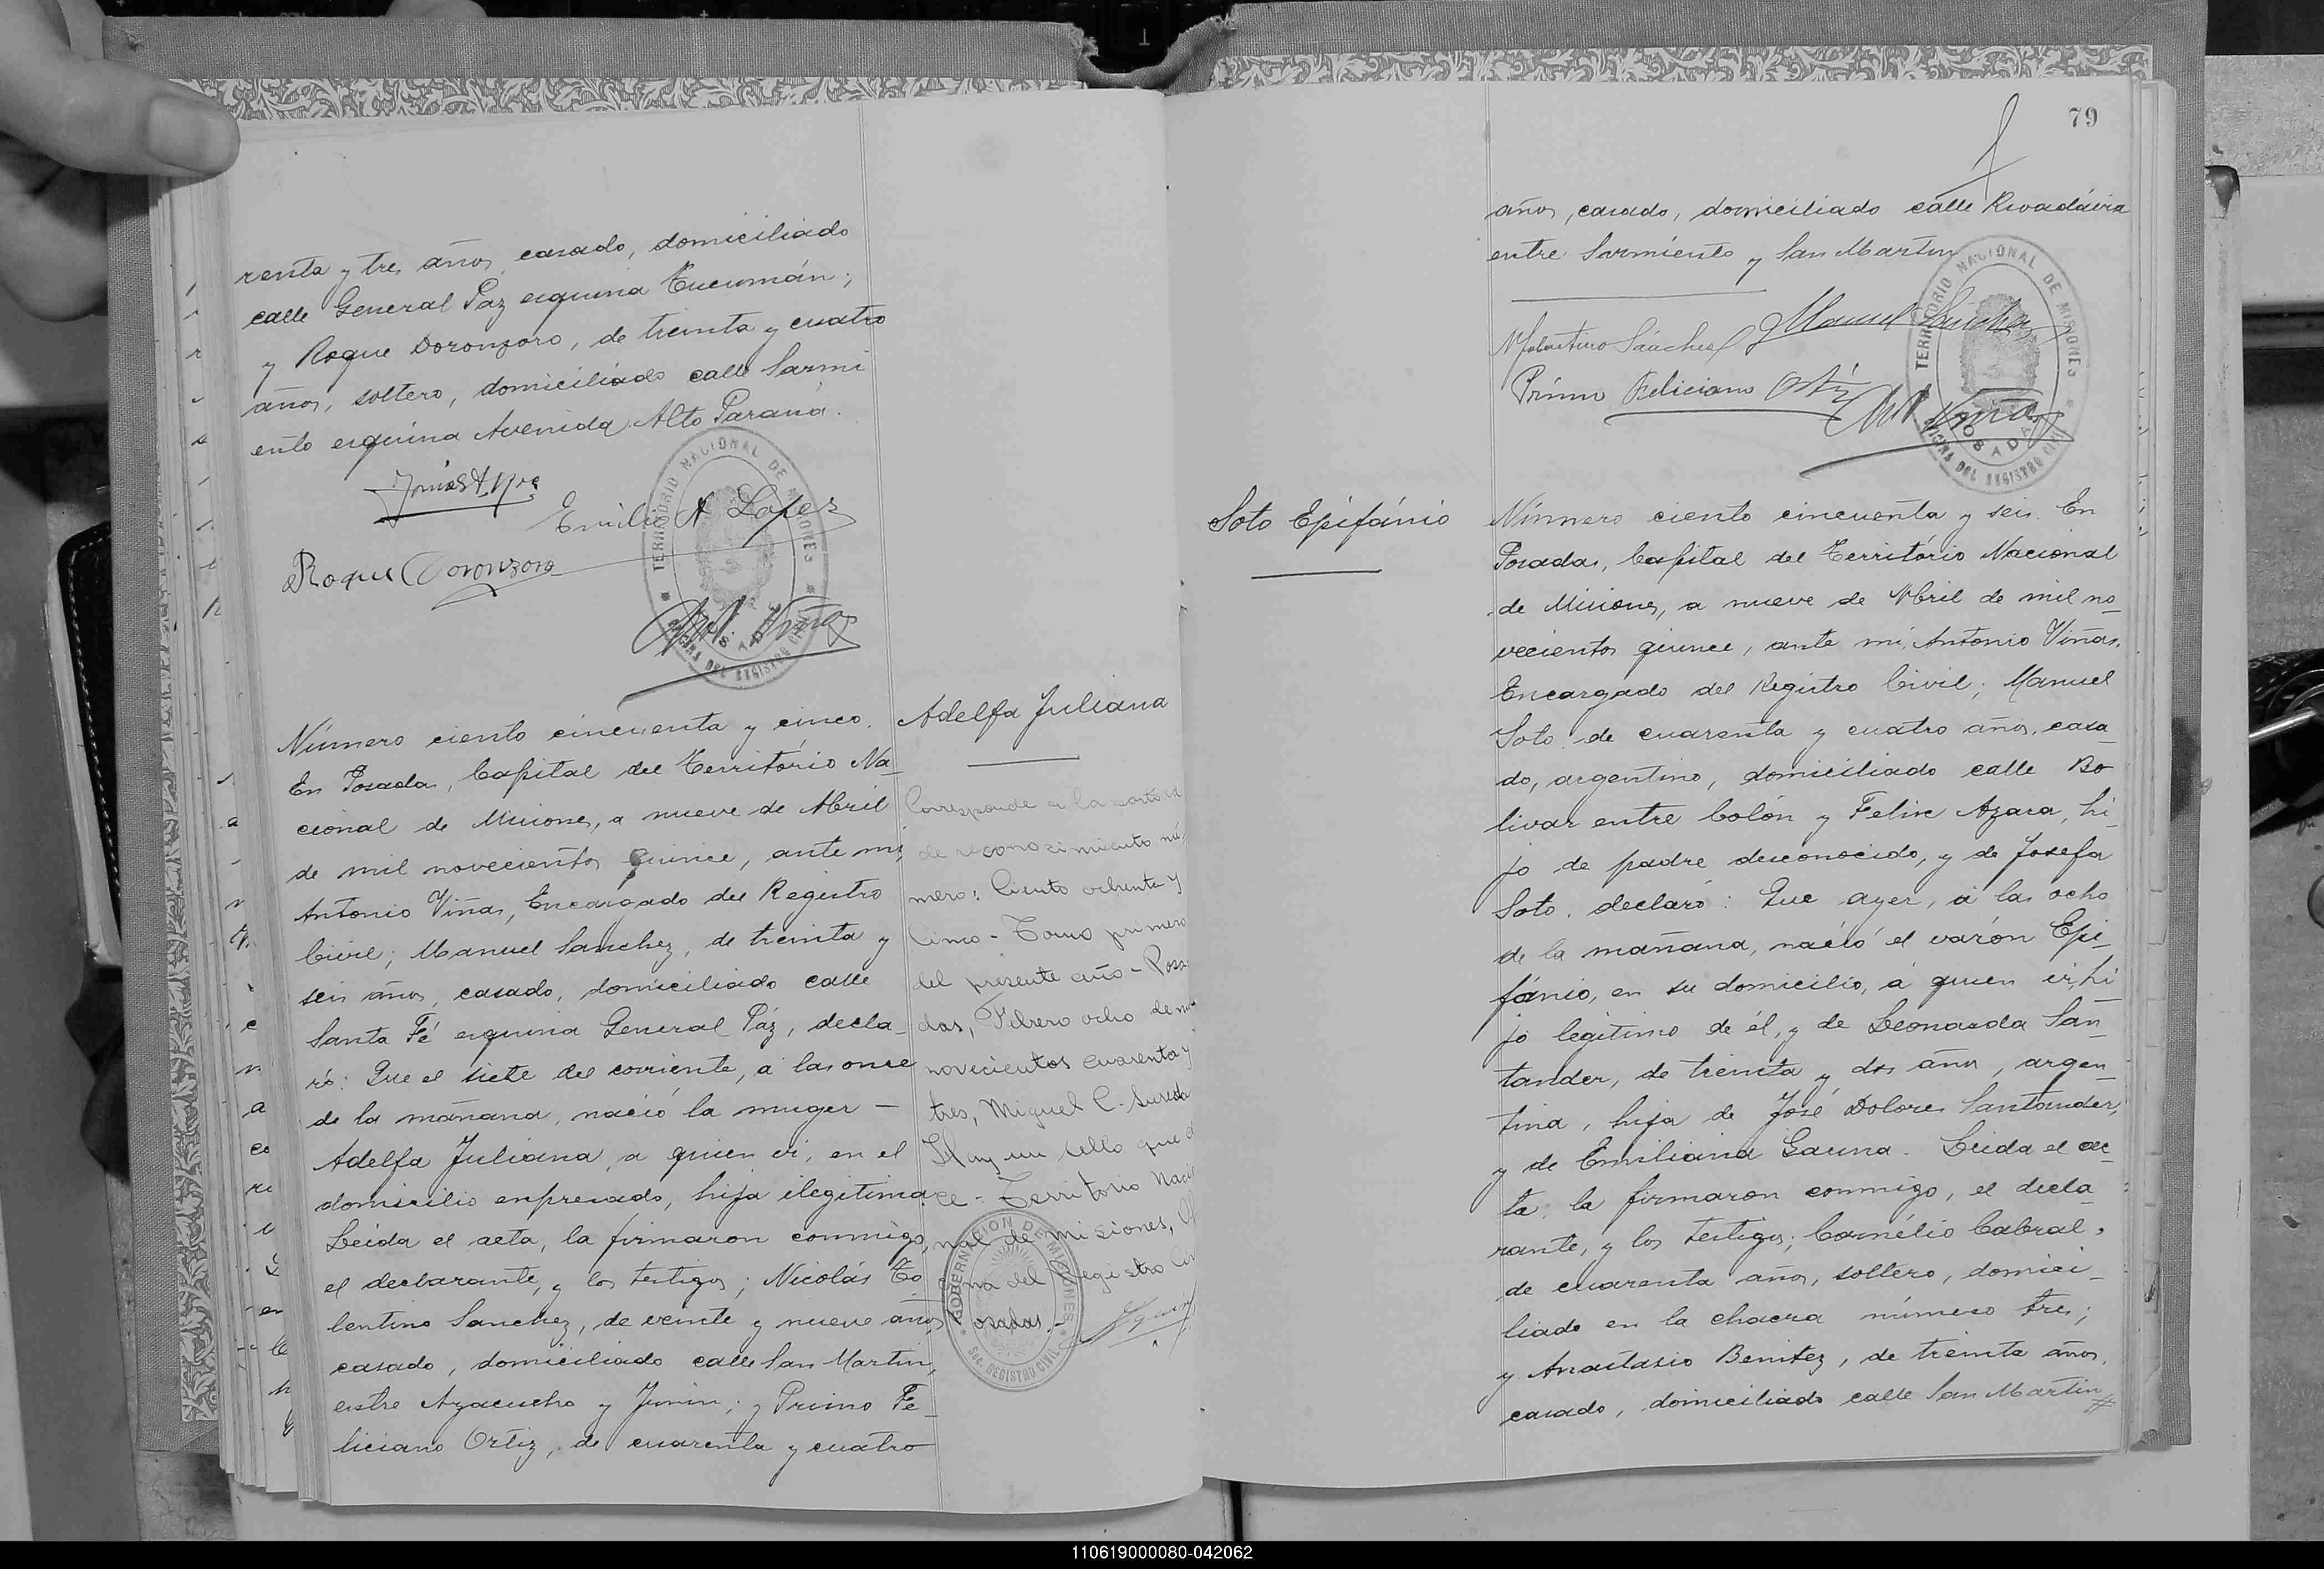 renta y tres años, casado, domiciliado
calle General Paz esquina Tucumán;
y Roque Doronzoro, de treinta y cuatro
años, soltero, domiciliado calle Sarmi
ento esquina Avenida Alto Paraná.
Emilio A Lopez
Roque Doronzoro
TERRITORIO NACIONAL DE MISIONES
OFICINA DEL REGISTRO CIVIL
POSADAS
Número ciento cincuenta y cinco.
En Posadas, Capital del Território Na_
cional de Misiones, a nueve de Abril
de mil novecientos quince, ante mi,
Antonio Viñas, Encargado del Registro
Civil; Manuel Sanchez, de treinta y
seis años, casado, domiciliado calle
Santa Fé esquina General Páz, decla_
ró: Que el siete del corriente, á las once
de la mañana, nació la muger —
Adelfa Juliana, a quien vi, en el
domicilio expresado, hija ilegitima.
Leida el acta, la firmaron conmigo,
el declarante, y los testigos; Nicolás To
lentino Sanchez, de veinte y nueve años,
casado, domiciliado calle San Martin,
entre Ayacucho y Junin; y Primo Fe_
liciano Ortiz, de cuarenta y cuatro
Adelfa Juliana
Corresponde a la
de reconocimiento nú
mero: Ciento ochenta y
Cinco - Tomo primero
del presente año - Posa
das, Febrero ocho de
novecientos cuarenta y
tres, Miguel C.
Hay un sello que
ce - Territorio Nacio
nal de Misiones,
na del Registro
osadas.-
GOBERNACION DE MISIONES
SEC. REGISTRO CIVIL
79
años, casado, domiciliado calle Rivadávia
entre Sarmiento y San Martin
Sánchez Manuel Sanchez
Primo Feliciano Ortiz
TERRITORIO NACIONAL DE MISIONES
OFICINA DEL REGISTRO CIVIL
POSADAS
Soto Epifánio
Número ciento cincuenta y seis. En
Posadas, Capital del Território Nacional
de Misiones, a nueve de Abril de mil no_
vecientos quince, ante mi, Antonio Viñas,
Encargado del Registro Civil; Manuel
Soto, de cuarenta y cuatro años, casa_
do, argentino, domiciliado calle Bo
livar entre Colón y Felix Azara, hi_
jo de padre desconocido, y de Josefa
Soto, declaró: Que ayer, á las ocho
de la mañana, nació el varón Epi_
fánio, en su domicilio, á quien vi, hi_
jo legitimo de él, y de Leonarda San_
tander, de treinta y dos años, argen_
tina, hija de José Dolores Santander,
y de Emiliana Gauna. Leida el ac_
ta, la firmaron conmigo, el decla_
rante, y los testigos; Cornélio Cabral,
de cuarenta años, soltero, domici_
liado en la chacra número tres;
y Anastasio Benitez, de treinta años,
casado, domiciliado calle San Martin
110619000080-042062